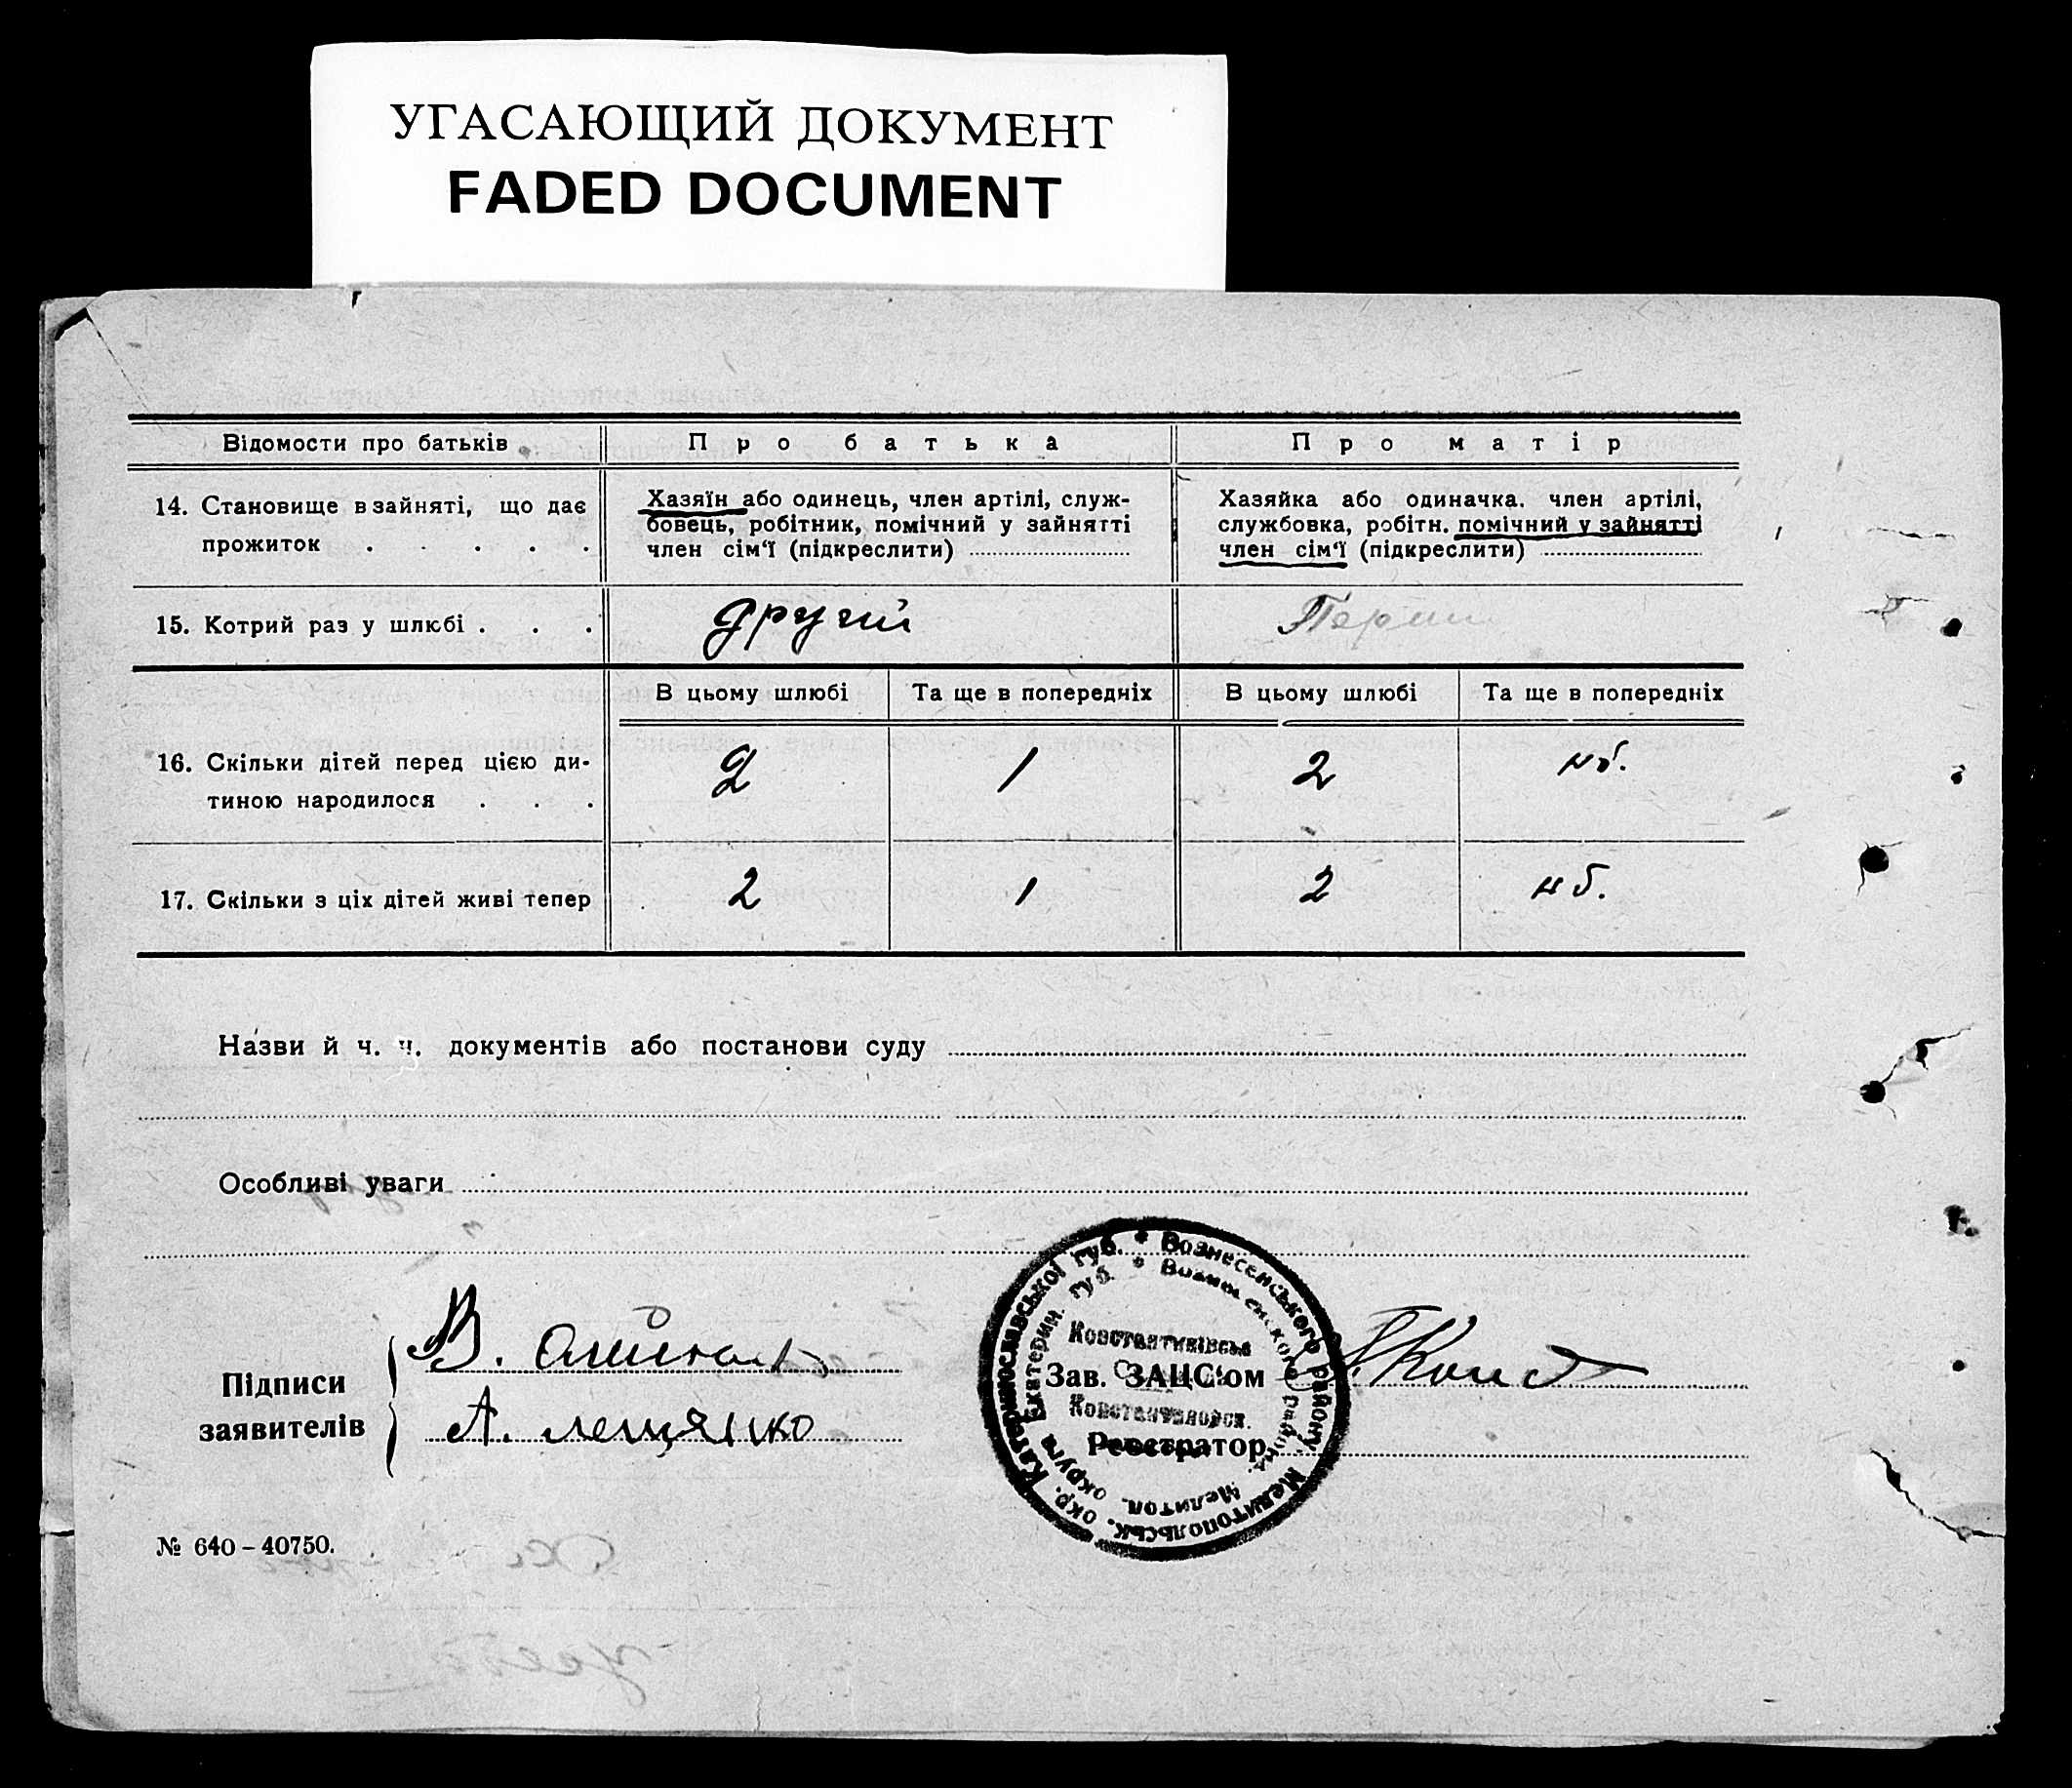 УГАСАЮЩИЙ ДОКУМЕНТ
FADED DOCUMENT
Відомости про батьків
Про батька
Про матір
14. Становище в зайняті, що дає
прожиток . . . . .
Хазяїн або одинець, член артілі, служ-
бовець, робітник, помічний у зайнятті
член сім'ї (підкреслити)
Хазяйка або одиначка. член артілі,
службовка, робітн. помічний у зайнятті
член сім'ї (підкреслити)
15. Котрий раз у шлюбі . . .
другій
Перши
В цьому шлюбі
Та ще в попередніх
В цьому шлюбі
Та ще в попередніх
16. Скільки дітей перед цією ди-
тиною народилося . . .
2
1
2
нб.
17. Скільки з ціх дітей живі тепер
2
1
2
нб.
Назви й ч. ч. документів або постанови суду
Особливі уваги
Підписи
заявителів
В.
А. лещянко
Катеринославської губ. * Вознесенського району, Мелитопольськ. окр.
Екатерин. губ. * Вознесенского района, Мелитоп. округа
Константинівська
Зав. ЗАЦС'ом
Константиновск.
Реєстратор
№ 640-40750.